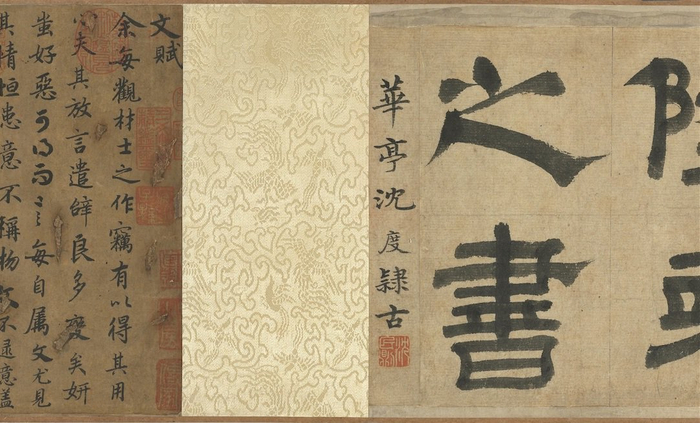 之書
華亭沈度隸古
文賦
余每觀材士之作竊有以得其用
心夫其放言遣辭良多變矣妍
蚩好惡可得而言每自屬文尤見
其情恒患意不稱物文不逮意蓋